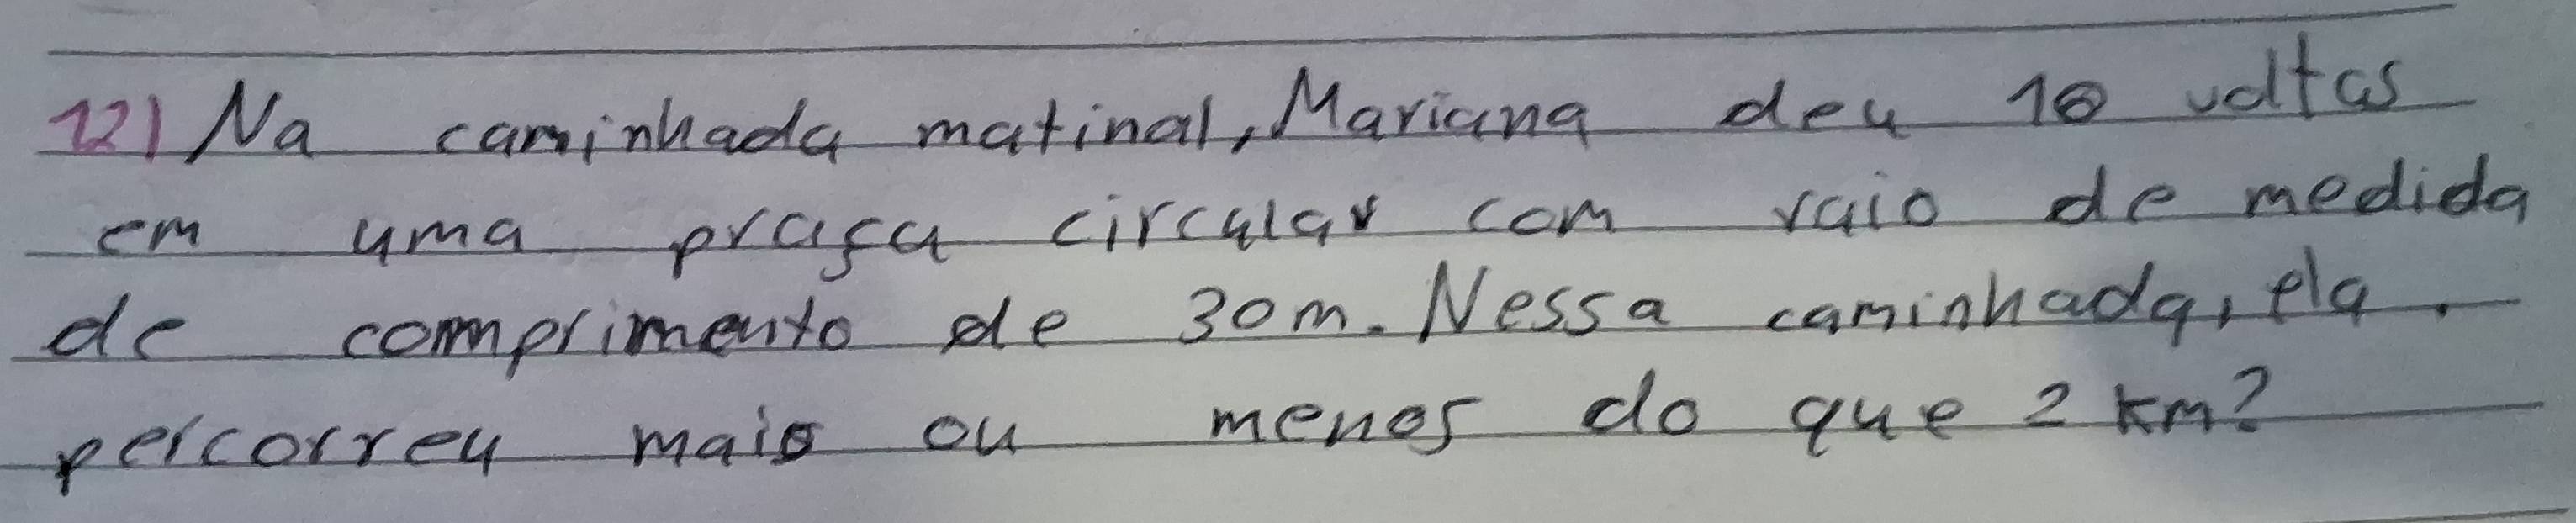 12) Na caminhada matinal, Mariana deu 10 voltas
em uma praça circular com raio de medida
de comprimento de 30m. Nessa caminhada, ela
percorreu mais ou menos do que 2 km?